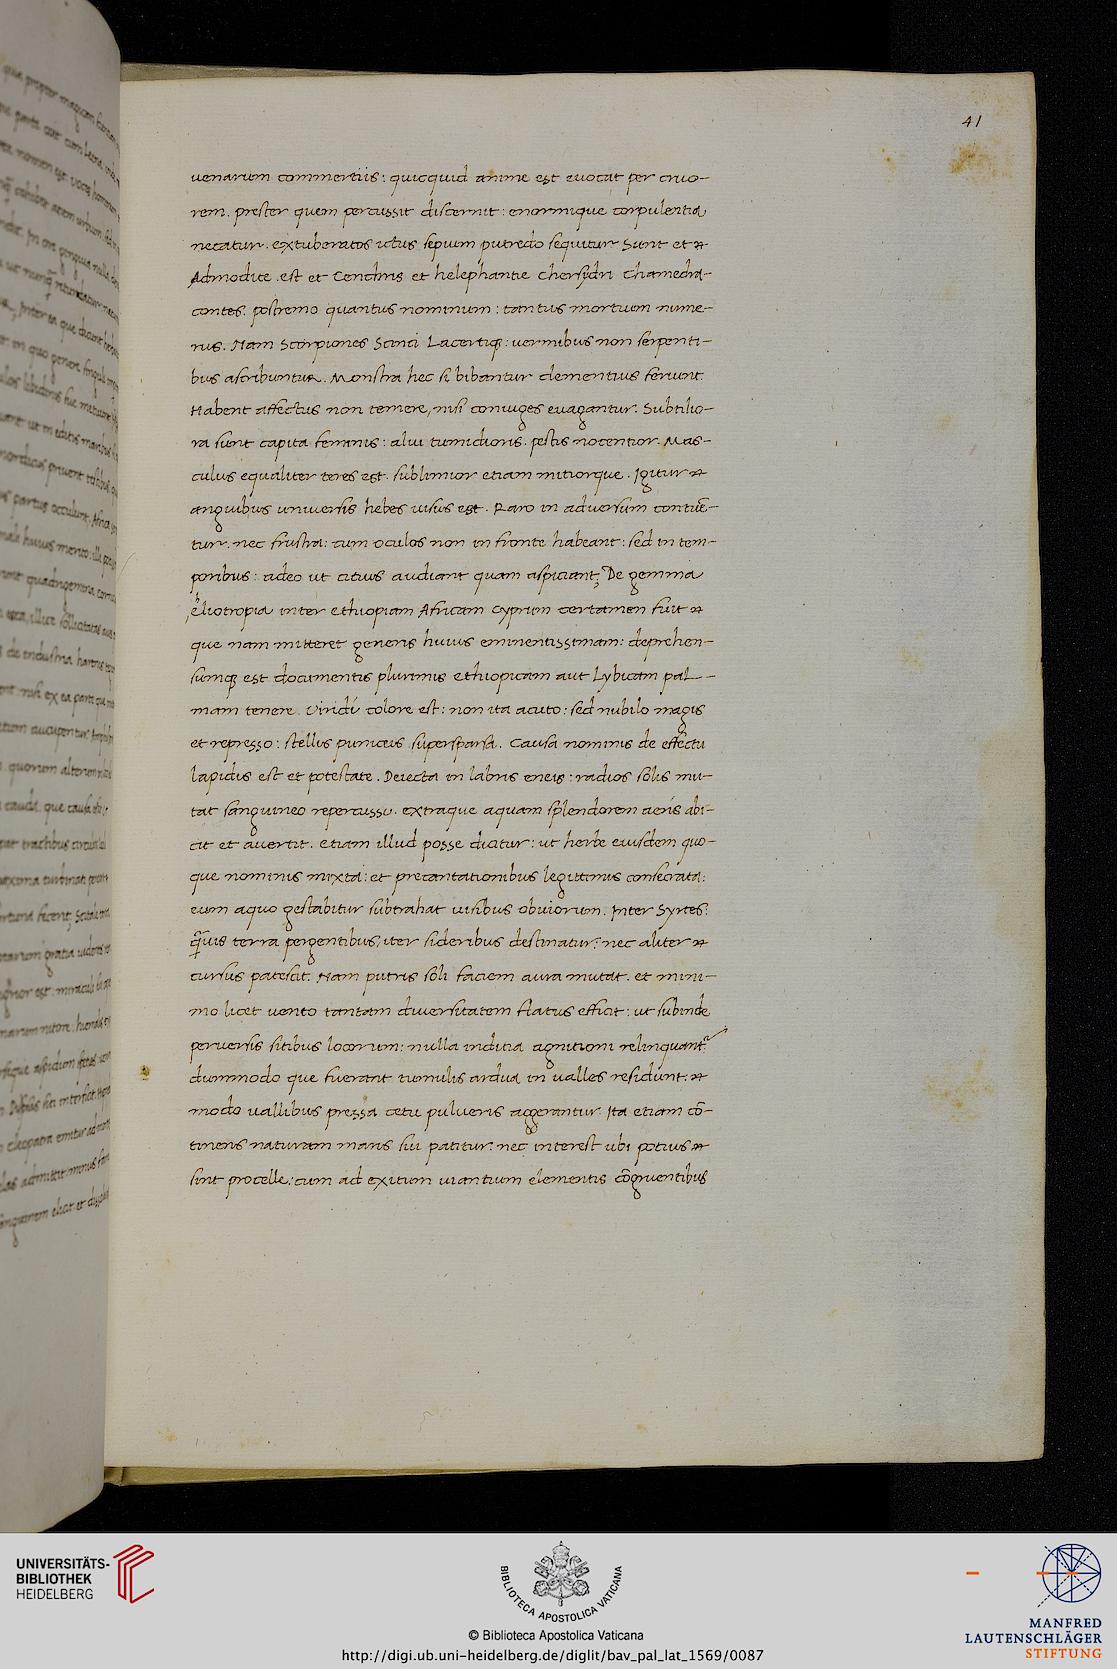 41
uenarum commertiis: quicquid anime est euocat per cruo-
rem. prester quem percussit discernit: enormique corpulentia
necatur. extuberatos ictus sepium putredo sequitur Sunt et
Admodite. est et Cenchris et helephantie chersydri Chamedra-
contes. postremo quantus nominum: tantus mortium nume-
rus. Nam Scorpiones Scinci Lacertiq; uermibus non serpenti-
bus ascribuntur. Monstra hec si bibantur clementius feriunt.
Habent affectus non temere, nisi coniuges euagantur. Subtilio-
ra sunt capita feminis: alui tumidioris. pestis nocentior. Mas-
culus equaliter teres est. sublimior etiam mitiorque. Igitur
anguibus uniuersis hebes uisus est. Raro in aduersum contuē-
tur. nec frustra: cum oculos non in fronte habeant: sed in tem-
poribus: adeo ut citius audiant quam aspiciant; De gemma
eliotropia inter ethiopiam Africam Cyprum certamen fuit
que nam mitteret generis huius eminentissimam: deprehen-
sumq; est documentis plurimis ethiopicam aut Lybicam pal-
mam tenere. Viridi colore est: non ita acuto: sed nubilo magis
et represso: stellis puniceis supersparsa. Causa nominis de effectu
lapidis est et potestate. Deiecta in labris eneis: radios solis mu-
tat sanguineo repercussu. extraque aquam splendorem aeris abi-
cit et auertit. etiam illud posse dicitur: ut herbe eiusdem quo-
que nominis mixta: et precantationibus legittimis consecrata:
eum aquo gestabitur subtrahat uisibus obuiorum. Inter Syrtes:
q̄uis terra pergentibus, iter sideribus destinatur: nec aliter
cursus patescit. Nam putris soli faciem aura mutat. et mini-
mo licet uento tantam diuersitatem flatus efficit: ut subinde
peruersis sitibus locorum: nulla inditia agnitioni relinquant.
dummodo que fuerant tumulis ardua in ualles residunt:
modo uallibus pressa cetu pulueris aggerantur. Ita etiam cō-
tinens naturam maris sui patitur: nec interest ubi potius
sint procelle: cum ad exitium uiantium elementis cōgruentibus
UNIVERSITÄTS-
BIBLIOTHEK
HEIDELBERG
BIBLIOTECA APOSTOLICA VATICANA
© Biblioteca Apostolica Vaticana
http://digi.ub.uni-heidelberg.de/diglit/bav_pal_lat_1569/0087
MANFRED
LAUTENSCHLÄGER
STIFTUNG